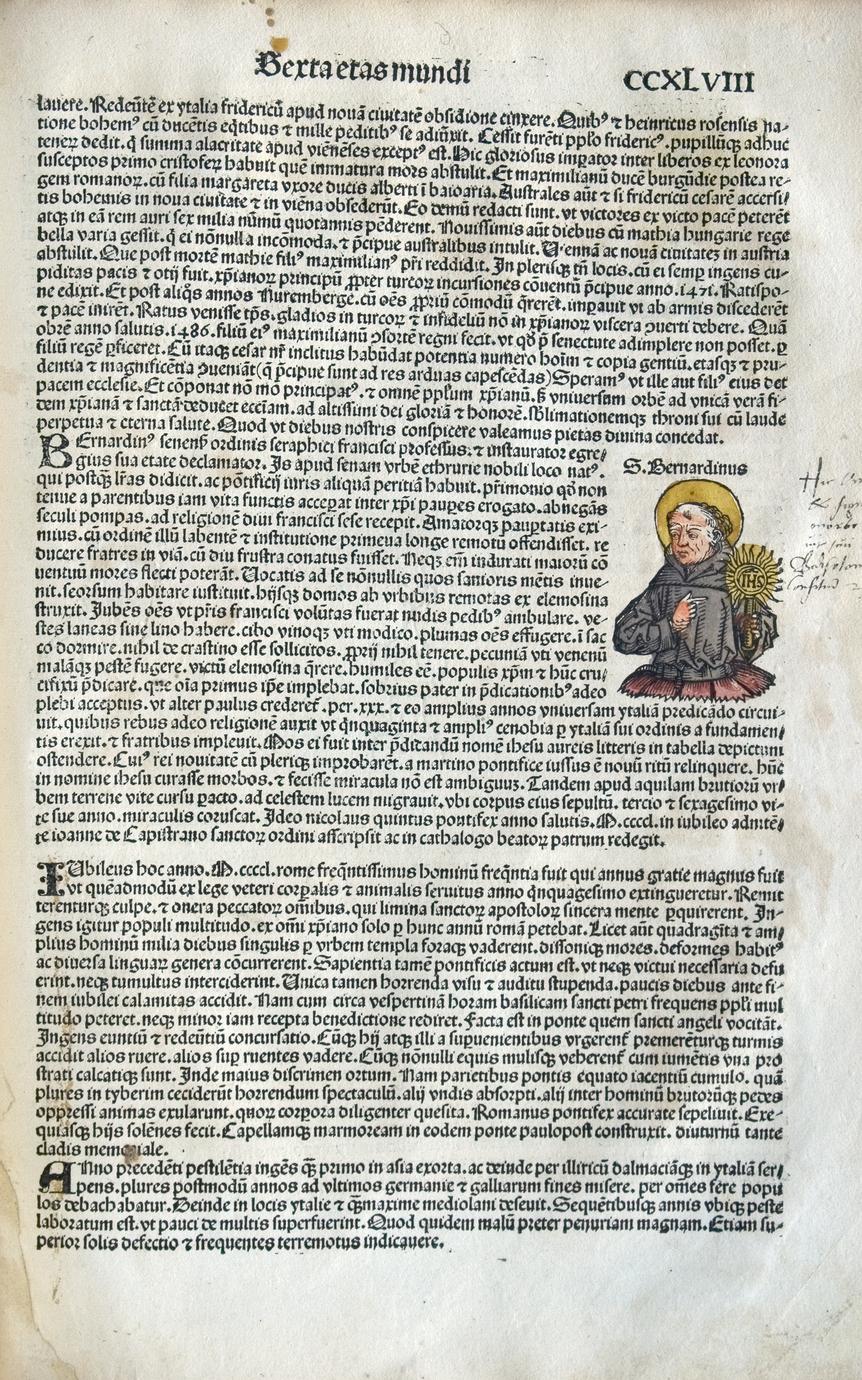 Sexta etas mundi
CCXLVIII
lauere. Redeũtẽ ex ytalia fridericũ apud nouã ciuitatẽ obsidione cinxere. Quibꝰ ⁊ heinricus rosensis na-
tione bohemꝰ cũ ducẽtis eq̃tibus ⁊ mille peditibꝰ se adiũxit. Cessit furẽti pp̃lo fridericꝰ. pupillũq; adhuc
tenerꝫ dedit. q̃ summa alacritate apud viẽnẽses exceptꝰ est. Hic gloriosus imꝑator inter liberos ex leonora
susceptos primo cristoferꝫ habuit quẽ immatura mors abstulit. Et maximilianũ ducẽ burgũdie postea re-
gem romanoꝝ. cũ filia margareta vxore ducis alberti ĩ baioaria. Australes aũt ⁊ si fridericũ cesarẽ accersi/
tis bohemis in noua ciuitate ⁊ in viẽna obsederũt. Eo demũ redacti sunt. vt victores ex victo pacẽ peterẽt
atq; in eã rem auri sex milia nũmũ quotannis pẽderent. Nouissimis aũt diebus cũ mathia hungarie rege
bella varia gessit. q̃ ei nõnulla incõmoda. ⁊ p̃cipue australibus intulit. Viennã ac nouã ciuitatẽ in austria
abstulit. Que post mortẽ mathie filiꝰ maximilianꝰ pr̃i reddidit. In plerisq; tñ locis. cũ ei semꝑ ingens cu-
piditas pacis ⁊ otij fuit. xp̃ianoꝝ principũ ꝓpter turcoꝝ incursiones cõuentũ p̃cipue anno .1471. Ratispo-
ne edixit. Et post aliq̃s annos Nuremberge. cũ oẽs ꝓpriũ cõmodũ q̃rerẽt. imꝑauit vt ab armis discederẽt
⁊ pacẽ inirẽt. Ratus venisse tp̃s. gladios in turcoꝝ ⁊ infideliũ nõ in xp̃ianoꝝ viscera ꝯuerti debere. Quã
obrẽ anno salutis .1486. filiũ eiꝰ maximilianũ ꝯsortẽ regni fecit. vt qð p̃ senectute adimplere non posset. ꝑ
filiũ regẽ ꝑficeret. Cũ itaq; cesar nr̃ inclitus habũdat potentia numero hoĩm ⁊ copia gentiũ. etasq; ⁊ pru-
dentia ⁊ magnificẽtia ꝯueniãt (q̃ p̃cipue sunt ad res arduas capescẽdas) Speramꝰ vt ille aut filiꝰ eius det
pacem ecclesie. Et cõponat nõ mõ principatꝰ. ⁊ omnẽ pp̃lum xp̃ianũ. sʒ vniuersum orbẽ ad vnicã verã fi-
dem xp̃ianã ⁊ sanctã deducet eccl̃iam. ad altissimi dei gloriã ⁊ honorẽ. sublimationemq; throni sui cũ laude
perpetua ⁊ eterna salute. Quod vt diebus nostris conspicere valeamus pietas diuina concedat.
BErnardinꝰ senensꝭ ordinis seraphici francisci professus. ⁊ instaurator egre/
gius sua etate declamator. Is apud senam vrbẽ ethrurie nobili loco natꝰ.
qui postq̃ lr̃as didicit. ac põtificij iuris aliquã peritiã habuit. p̃rimonio qð non
tenue a parentibus iam vita functis acceꝑat inter xp̃i pauꝑes erogato. abnegãs
seculi pompas. ad religionẽ diui francisci sese recepit. Amatorq; pauꝑtatis exi-
mius. cũ ordinẽ illũ labentẽ ⁊ institutione primeua longe remotũ offendisset. re
ducere fratres in viã. cũ diu frustra conatus fuisset. Neq; em̃ indurati maiorũ cõ
uentuũ mores flecti poterãt. Uocatis ad se nõnullis quos sanioris mẽtis inue-
nit. seorsum habitare instituit. hijsq; domos ab vrbibus remotas ex elemosina
struxit. Jubẽs oẽs vt pr̃is francisci volũtas fuerat nudis pedibꝰ ambulare. ve-
stes laneas sine lino habere. cibo vinoq; vti modico. plumas oẽs effugere. ĩ sac
co dormire. nihil de crastino esse sollicitos. ꝓprij nihil tenere. pecuniã vti venenũ
malãq; pestẽ fugere. victũ elemosina q̃rere. humiles eẽ. populis xp̃m ⁊ hũc cru/
cifixũ p̃dicare. que oĩa primus ip̃e implebat. sobrius pater in p̃dicationibꝰ adeo
plebi acceptus. vt alter paulus crederetꝭ. per .xxx. ⁊ eo amplius annos vniuersam ytaliã predicãdo circui-
uit. quibus rebus adeo religionẽ auxit vt q̃nquaginta ⁊ ampliꝰ cenobia ꝑ ytaliã sui ordinis a fundamen/
tis erexit. ⁊ fratribus impleuit. Mos ei fuit inter p̃dicandũ nomẽ ihesu aureis litteris in tabella depictum
ostendere. Cuiꝰ rei nouitatẽ cũ pleriq; improbarẽt. a martino pontifice iussus ẽ nouũ ritũ relinquere. hũc
in nomine ihesu curasse morbos. ⁊ fecisse miracula nõ est ambiguuꝫ. Tandem apud aquilam brutiorũ vr/
bem terrene vite cursu ꝑacto. ad celestem lucem migrauit. vbi corpus eius sepultũ. tercio ⁊ sexagesimo vi-
te sue anno. miraculis coruscat. Ideo nicolaus quintus pontifex anno salutis .M.ccccl. in iubileo adnitẽ/
te ioanne de Capistrano sanctoꝝ ordini asscripsit ac in cathalogo beatoꝝ patrum redegit.
S. Bernardinus
IHS
IUbileus hoc anno .M.ccccl. rome freq̃ntissimus hominũ freq̃ntia fuit qui annus gratie magnus fuit
vt quẽadmodũ ex lege veteri corꝑalis ⁊ animalis seruitus anno q̃nquagesimo extingueretur. Remit
terenturq; culpe. ⁊ onera peccatoꝝ om̃ibus. qui limina sanctoꝝ apostoloꝝ sincera mente ꝑquirerent. In-
gens igitur populi multitudo. ex om̃i xp̃iano solo ꝑ hunc annũ romã petebat. Licet aũt quadragĩta ⁊ am/
plius hominũ milia diebus singulis ꝑ vrbem templa foraq; vaderent. dissoniq; mores. deformes habitꝰ
ac diuersa linguaꝝ genera cõcurrerent. Sapientia tamẽ pontificis actum est. vt neq; victui necessaria defu
erint. neq; tumultus interciderint. Unica tamen horrenda visu ⁊ auditu stupenda. paucis diebus ante fi-
nem iubilei calamitas accidit. Nam cum circa vespertinã horam basilicam sancti petri frequens pp̃li mul
titudo peteret. neq; minor iam recepta benedictione rediret. Facta est in ponte quem sancti angeli vocitãt.
Ingens euntiũ ⁊ redeũtiũ concursatio. Cũq; hij atq; illi a suꝑuenientibus vrgerentꝭ premerẽturq; turmis
accidit alios ruere. alios suꝑ ruentes vadere. Cũq; nõnulli equis mulisq; veherentꝭ cum iumẽtis vna pro
strati calcatiq; sunt. Inde maius discrimen ortum. Nam parietibus pontis equato iacentiũ cumulo. quã
plures in tyberim ceciderũt horrendum spectaculũ. alij vndis absorpti. alij inter hominũ brutorũq; pedes
oppressi animas exularunt. quoꝝ corpora diligenter quesita. Romanus pontifex accurate sepeliuit. Exe-
quiasq; hijs solẽnes fecit. Capellamq; marmoream in eodem ponte paulopost construxit. diuturnũ tante
cladis memoriale.
ANno precedẽti pestilẽtia ingẽs q̃ʒ primo in asia exorta. ac deinde per illiricũ dalmaciãq; in ytaliã ser/
pens. plures postmodũ annos ad vltimos germanie ⁊ galliarum fines misere. per om̃es fere popu
los debachabatur. Deinde in locis ytalie ⁊ q̃ʒmaxime mediolani deseuit. Sequẽtibusq; annis vbiq; peste
laboratum est. vt pauci de multis superfuerint. Quod quidem malũ preter penuriam magnam. Etiam su-
perior solis defectio ⁊ frequentes terremotus indicauere.